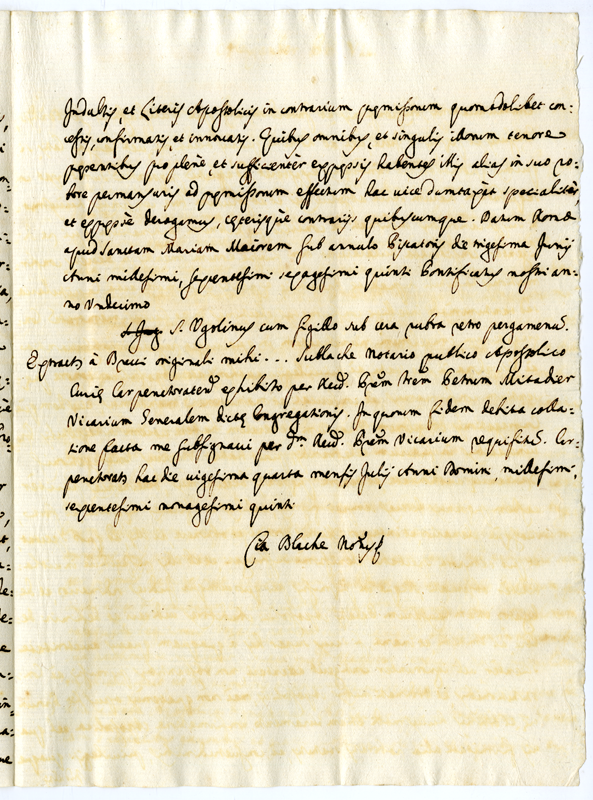 Indultis, et Literis Apostolicis in contrarium pręmissorum quomodolibet con=
cessis, confirmatis, et innovatis. Quibus omnibus, et singulis illorum tenores
pręsentibus pro plenè, et sufficienter expręssis habentes illis alias in suo ro=
bore permansuris ad pręmissorum effectum hac vice dumtaxat specialiter,
et expręsse derogamus, cęterisque contrariis quibuscumque. Datum Romę
apud Sanctam Mariam Maiorem sub annulo Piscatoris die trigesima Junij
Anni millesimi, septentesimi sexagesimi quinti Pontificatus nostri an=
no Undecimo
S. Ugolinus cum sigillo sub cera rubra retro pergamenũ.
Extractũ à Brevi originali mihi... Sublache Notario publico Apostolico
Curię Carpenctoratenś exhibito per Reud. Prem Irem Petrum Mitadier
Vicarium Generalem dictę Congregationis. In quorum fidem debita colla=
tione facta me subsignavi per dm Reud. Prem Vicarium requisitũ. Car=
penctoratũ hac die vigesima quarta mensis Julij Anni Domini, millesimi,
septentesimi nonagesimi quinti
Blache Notus